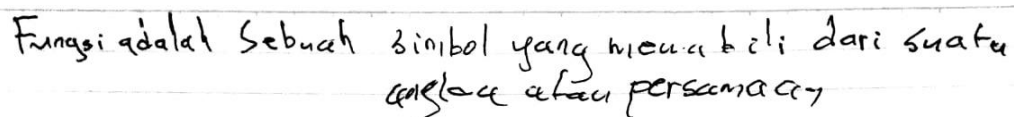 Fungsi adalah Sebuah simbol yang mewakili dari suatu
angka atau persamaan